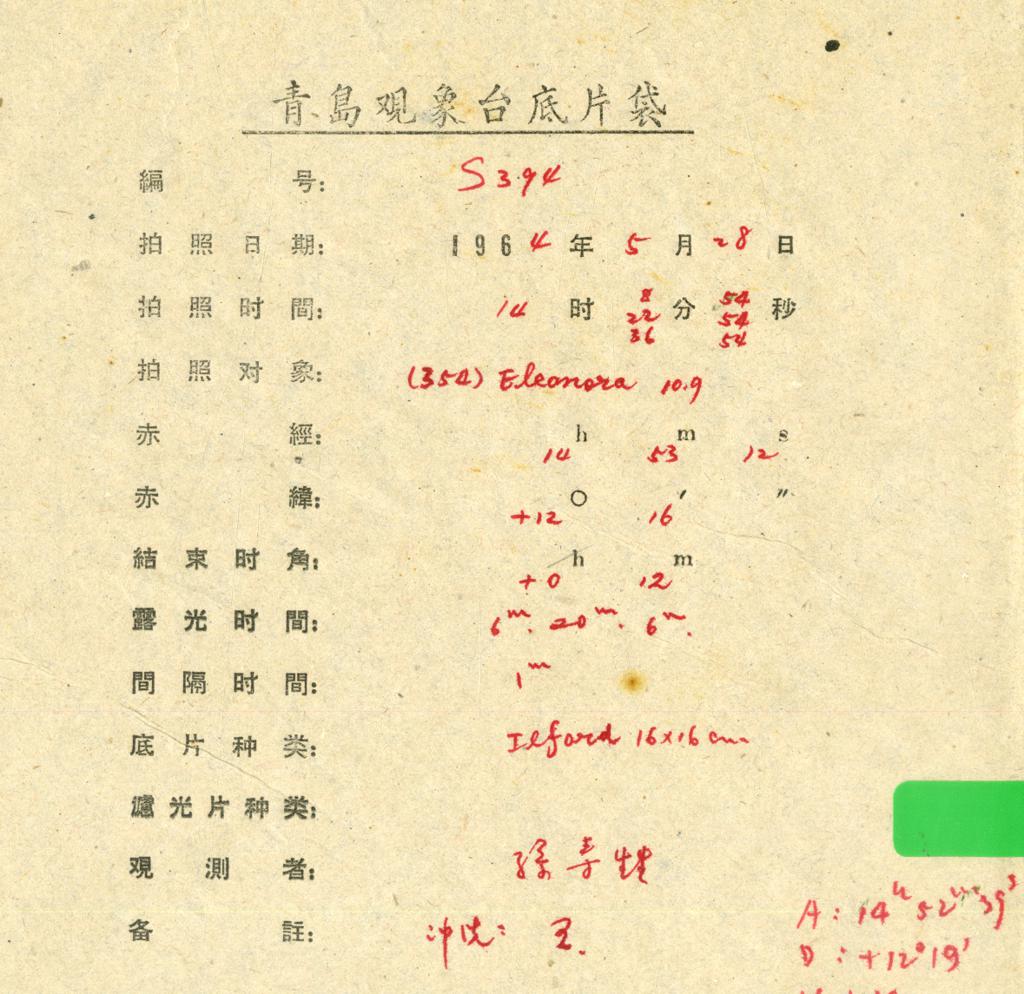 青島观象台底片袋
編号: S394
拍照日期: 1964年5月28日
拍照时間: 14时 8 22 36 分 54 54 54 秒
拍照对象: (354) Eleonora 10.9
赤經: 14h 53m 12s
赤緯: +12° 16′ ″
結束时角: +0h 12m
露光时間: 6m. 20m. 6m.
間隔时間: 1m
底片种类: Ilford 16x16cm
濾光片种类:
观測者: 孫寿
备註: 冲洗: 王.
A: 14h 52m 39s
D: +12°19′